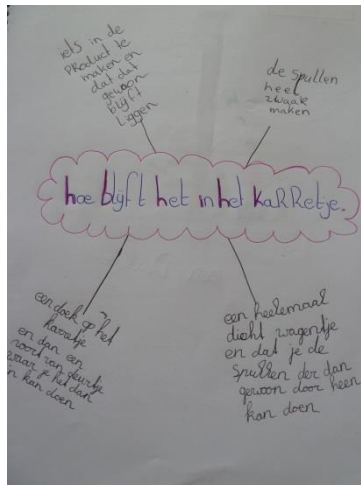 iets in de
product te
maken en
dat dat
gewoon
blijft
liggen
de spullen
heel
zwaar
maken
hoe blijft het in het kaRRetje.
een doek op het
karretje
en dan een
soort van deurtje
waar je het dan
in kan doen
een heelemaal
dicht wagentje
en dat je de
spullen der dan
gewoon door heen
kan doen